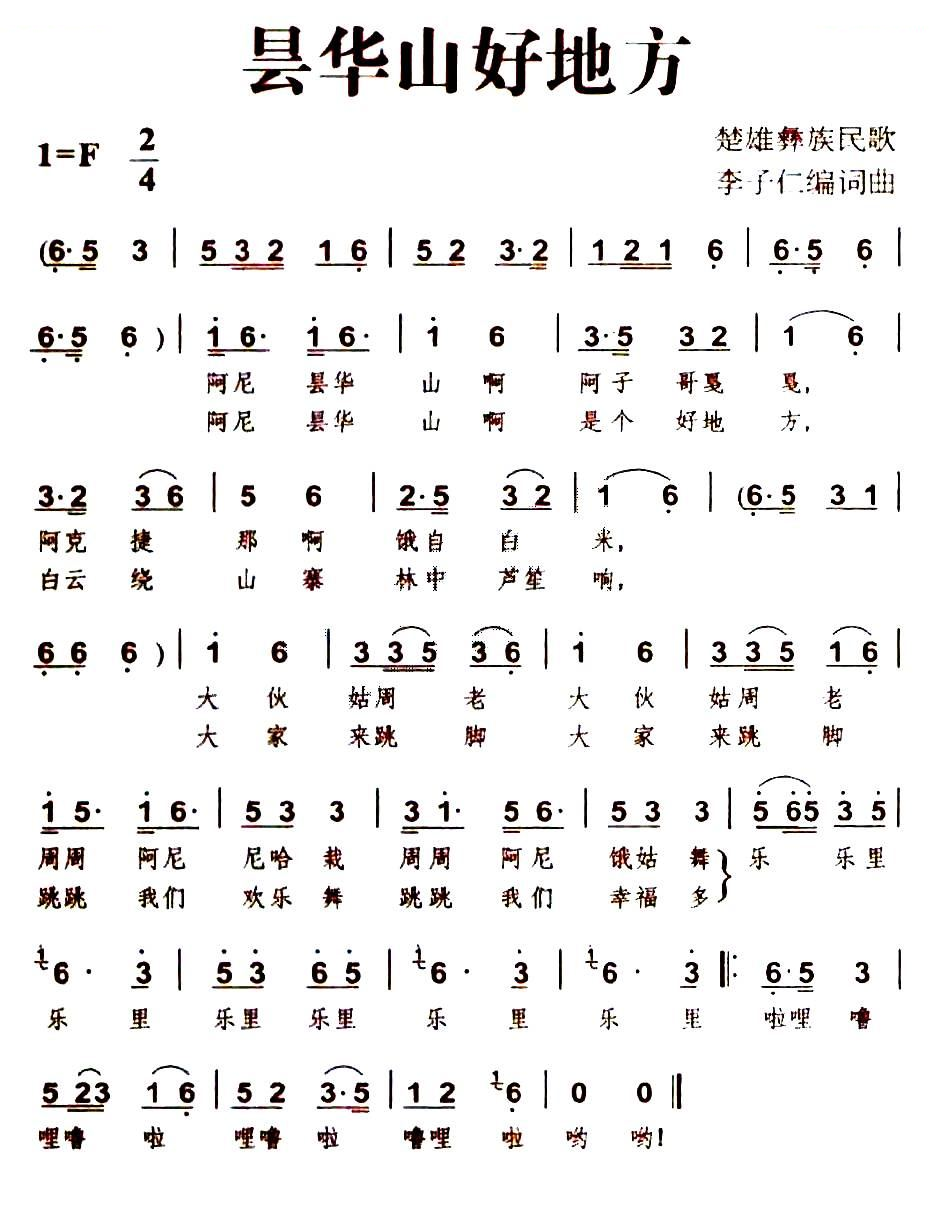 昙华山好地方
1=F 2/4
楚雄彝族民歌
李子仁编词曲
(6·5 3 | 5 3 2 1 6 | 5 2 3·2 | 1 2 1 6 | 6·5 6 |
6·5 6 ) | 1 6· 1 6· | 1 6 | 3·5 3 2 | 1 6 |
阿尼 昙华 山 啊 阿子 哥戛 戛,
阿尼 昙华 山 啊 是个 好地 方,
3·2 3 6 | 5 6 | 2·5 3 2 | 1 6 | (6·5 3 1 |
阿克 捷 那 啊 饿自 白 米,
白云 绕 山 寨 林中 芦笙 响,
6 6 6 ) | 1 6 | 3 3 5 3 6 | 1 6 | 3 3 5 1 6 |
大 伙 姑周 老 大 伙 姑周 老
大 家 来跳 脚 大 家 来跳 脚
1 5· 1 6· | 5 3 3 | 3 1· 5 6· | 5 3 3 | 5 6 5 3 5 |
周周 阿尼 尼哈 栽 周周 阿尼 饿姑 舞 } 乐 乐里
跳跳 我们 欢乐 舞 跳跳 我们 幸福 多
1 6· 3 | 5 3 6 5 | 1 6· 3 | 1 6· 3 :‖: 6·5 3 |
乐 里 乐里 乐里 乐 里 乐 里 啦哩 噜
5 2 3 1 6 | 5 2 3·5 | 1 2 1 6 | 0 0 ‖
哩噜 啦 哩噜 啦 噜哩 啦 哟 哟!